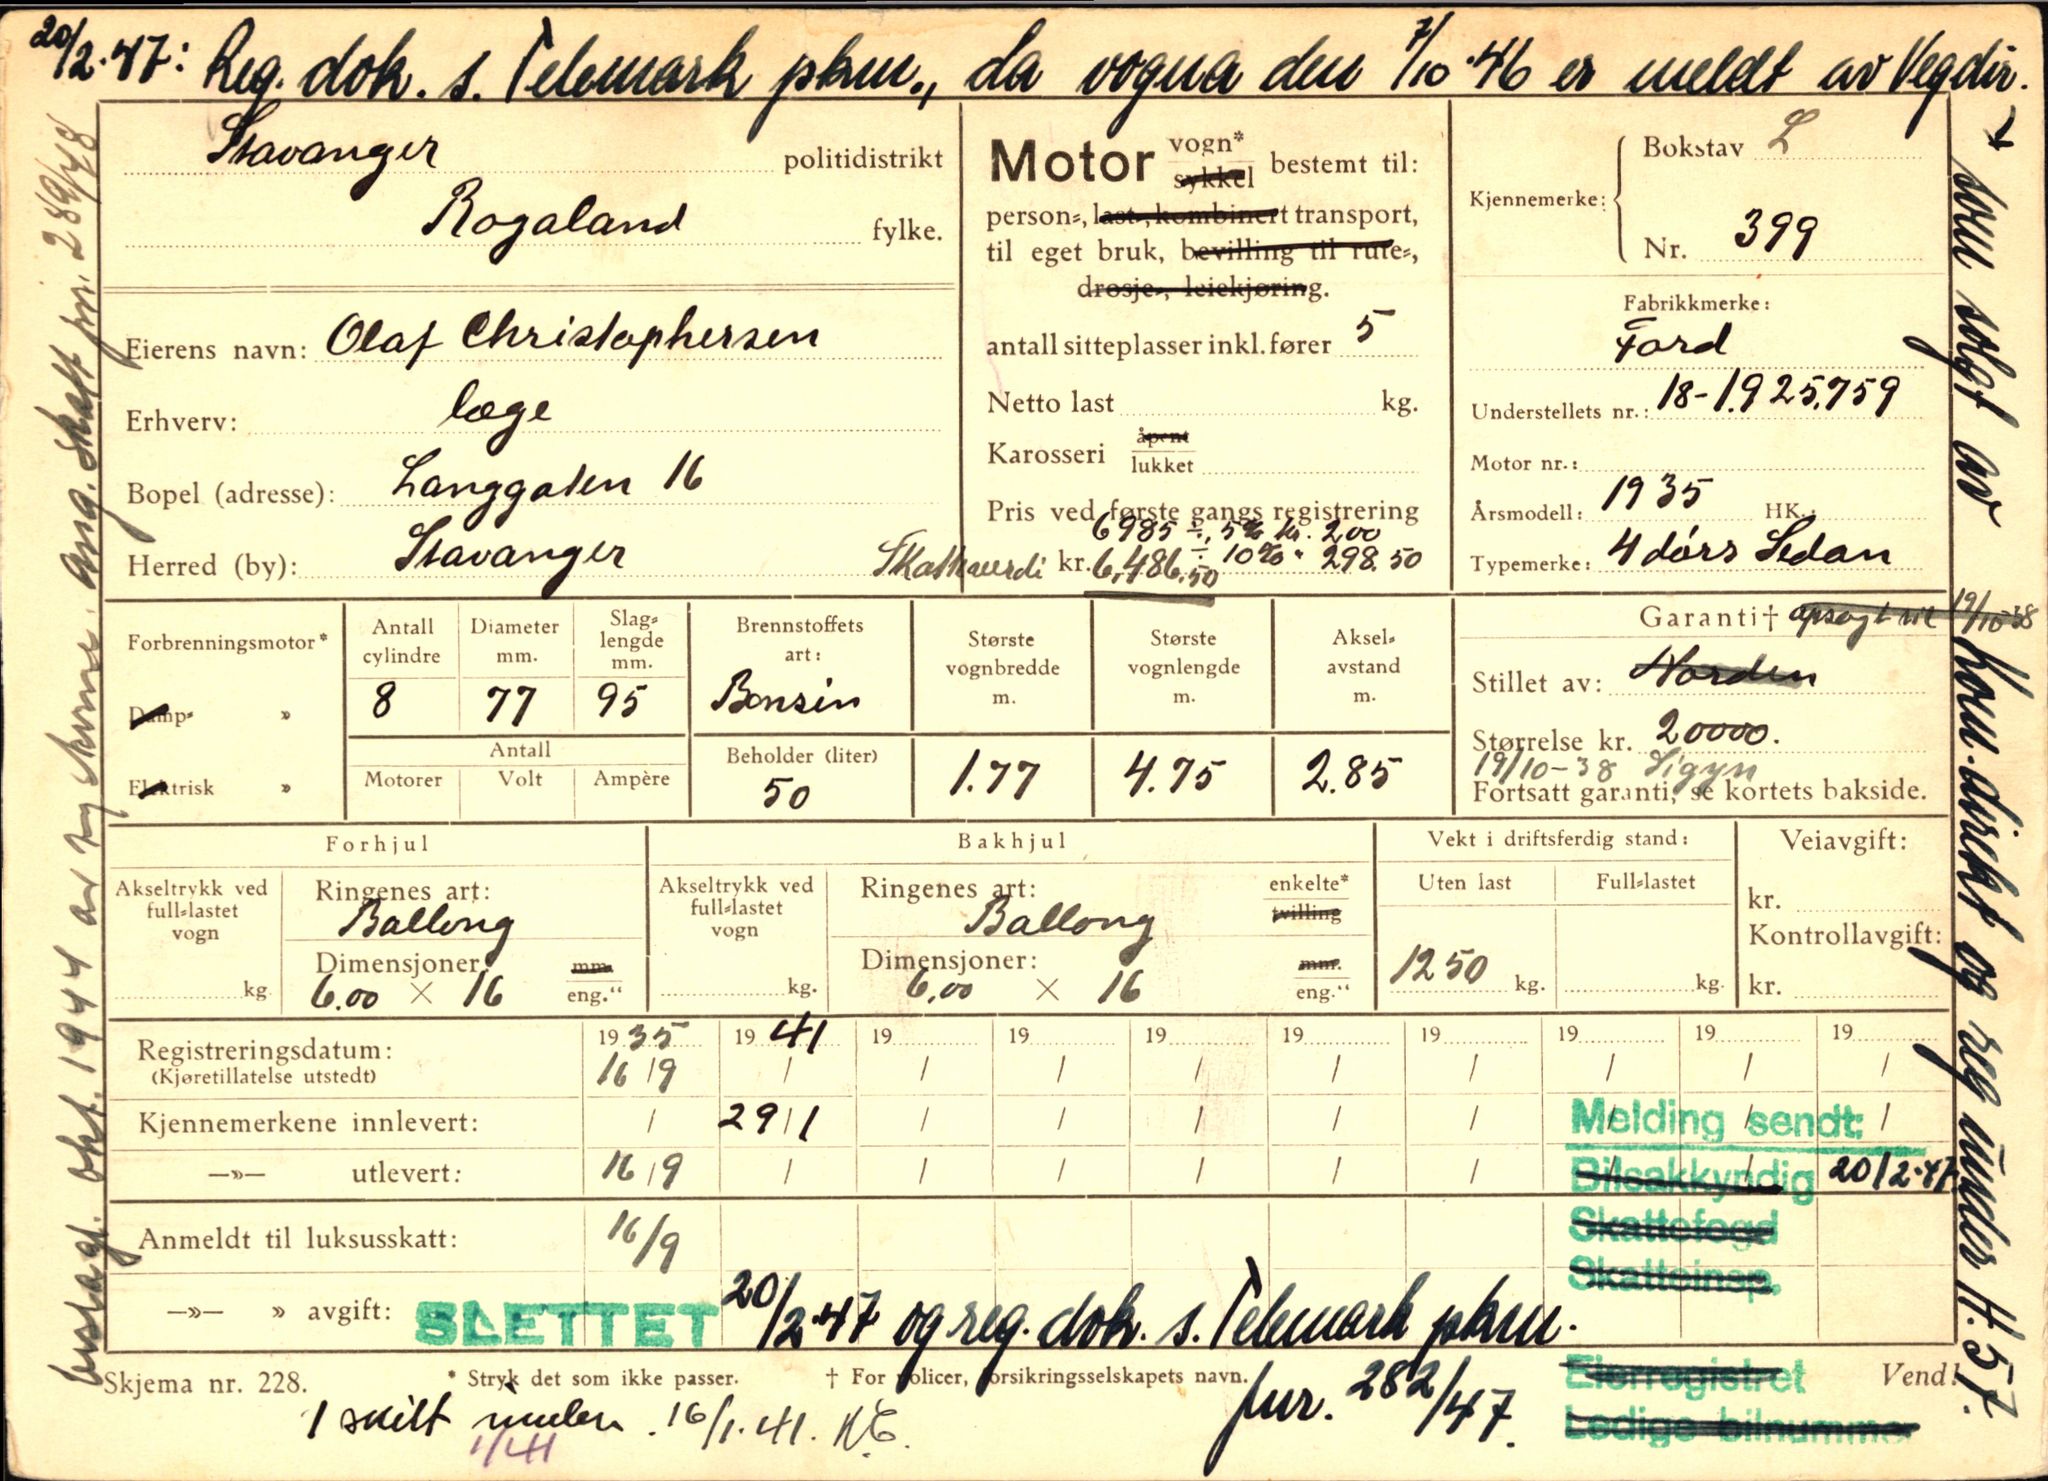 20/2.47: Reg. dok. s. Telemark pkm., da vogna den 7/10.46 er meldt av Vegdir.
som solgt av
Kom. dirikt og reg under H.57.
beslagl. okt. 1944 av tyskerne. ang. skatt jnr. 289/48
Stavanger politidistrikt
Rogaland fylke.
Eierens navn: Olaf Christophersen
Erhverv: læge
Bopel (adresse): Langgaten 16
Herred (by): Stavanger
Motor vogn*
sykkel bestemt til:
person-, last-, kombinert transport,
til eget bruk, bevilling til rute-,
drosje-, leiekjøring.
antall sitteplasser inkl. fører 5
Netto last kg.
Karosseri åpent
lukket
Pris ved første gangs registrering
6985 ÷ 5% kr. 200
Skatteverdi kr. 6,486,50 ÷ 10% " 298.50
Kjennemerke:
Bokstav L
Nr. 399
Fabrikkmerke:
Ford
Understellets nr.: 18-1.925.759
Motor nr.:
Årsmodell: 1935 HK.:
Typemerke: 4 dørs Sedan
Forbrenningsmotor*
Damp- »
Elektrisk »
Antall cylindre
8
Diameter mm.
77
Slag-lengde mm.
95
Antall
Motorer Volt Ampère
Brennstoffets art:
Bensin
Beholder (liter)
50
Største vognbredde m.
1.77
Største vognlengde m.
4.75
Aksel-avstand m.
2.85
Garanti† opsagt til 19/10-38
Stillet av: Norden
Størrelse kr. 20000.
19/10-38 Sigyn
Fortsatt garanti, se kortets bakside.
Forhjul
Akseltrykk ved
full-lastet
vogn
kg.
Ringenes art:
Ballong
Dimensjoner: mm.
6.00 × 16 eng.“
Bakhjul
Akseltrykk ved
full-lastet
vogn
kg.
Ringenes art: enkelte*
Ballong tvilling
Dimensjoner: mm.
6.00 × 16 eng.“
Vekt i driftsferdig stand:
Uten last Full-lastet
1250 kg. kg.
Veiavgift:
kr.
Kontrollavgift:
kr.
Registreringsdatum: 1935 1941 19 19 19 19 19 19 19 19
(Kjøretillatelse utstedt) 16/9 / / / / / / / / /
Kjennemerkene innlevert: / 29/1 / / / / / / / /
—»— utlevert: 16/9 / / / / / / /
Anmeldt til luksusskatt: 16/9
—»— » avgift:
SLETTET 20/2.47 og reg. dok. s. Telemark pkm.
Jnr. 282/47.
Melding sendt:
Bilsakkyndig 20/2.47.
Skattefogd
Skatteinsp.
Eierregistret
Ledige bilnummer
Skjema nr. 228.
* Stryk det som ikke passer.
† For policer, forsikringsselskapets navn.
Vend!
1 skilt 16/1.41.
1/41